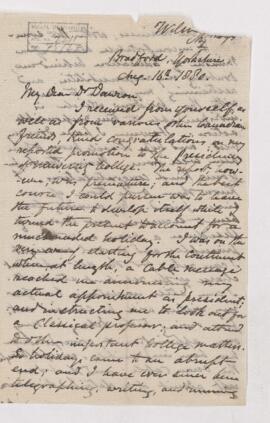 Bradford, Yorkshire,
Aug. 16th 1880.
My Dear Dr Dawson
I received from yourself, as
well as from various other Canadian
friends kind congratulations on my
reported promotion to the presidency
of College. The report, how-
ever, was premature, and the best
course I could pursue was to leave
the future to develop itself while I
turned the present to account for a
much needed holiday. I was on the
very eve of starting for the Continent
when at length, a Cable message
reached me announcing my
actual appointment as president;
and instructing me to look out for
a Classical professor, and attend
to other important College matters.
So holidays came to an abrupt
end; and I have ever since been
telegraphing, writing, and running